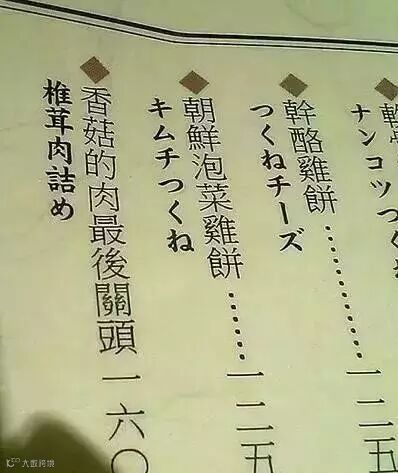 ナンコツつく
幹酪雞餅……一二五
つくねチーズ
朝鮮泡菜雞餅……一二五
キムチつくね
香菇的肉最後關頭一六〇
椎茸肉詰め
大数跨境